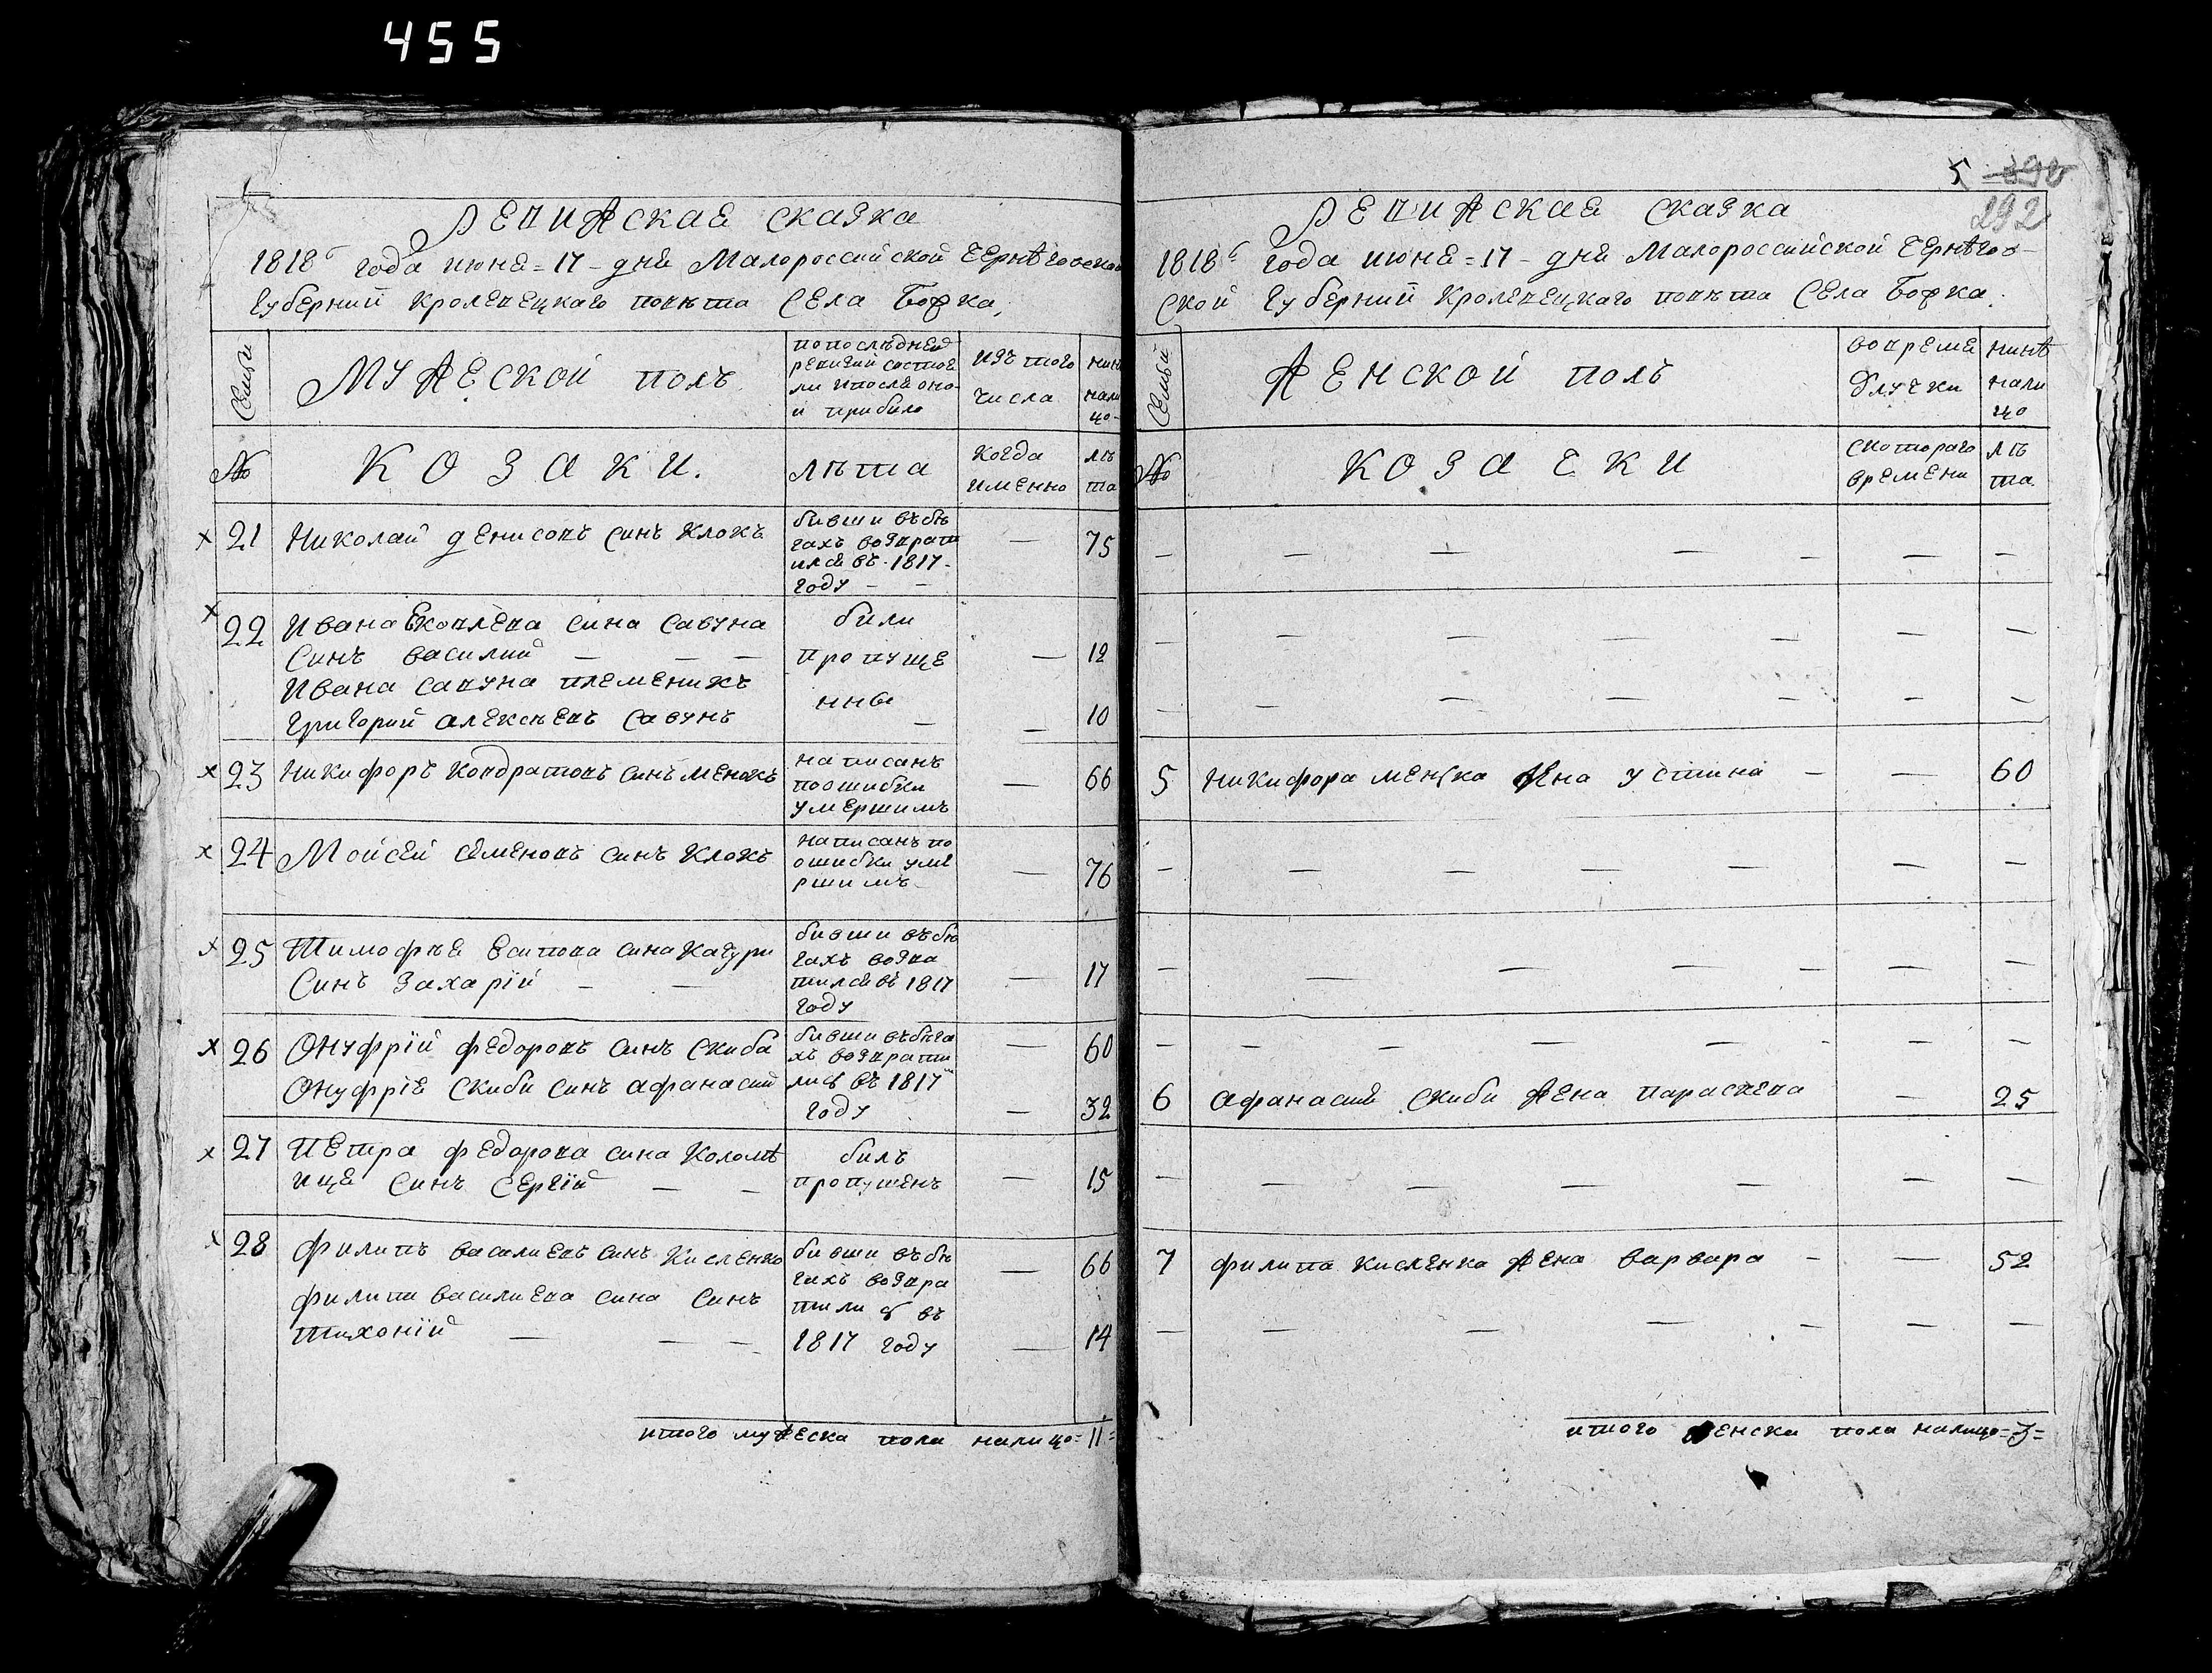 455
Ревижская сказка
1818г года июня = 17 - дня Малороссийской Чернѣговской
Губерний Кролевецкаго повѣта Села Бофка,
Семьи
Мужеской полъ
попослѣдней
ревизий состоя
ли ипосля оно
й прибило
изъ того
числа
нинѣ
нали
цо
№
Козаки.
лѣта
когда
именно
лѣ
та
х 21 Николай денисовъ синъ Клокъ — 75
бивши въбѣ
гахъ возврат
ился въ 1817
году — —
х 22 Ивана Яковлева сина Савуна
Синъ василий — — — — 12
Ивана савуна племеникъ
григорий алексѣевъ савунъ — — 10
били
пропуще
нны
х 23 Никифоръ Кондратовъ синъ менокъ — 66
написанъ
поошибки
умершимъ
х 24 Мойсей семеновъ синъ Клокъ — 76
написанъ по
ошибки уме
ршимъ
х 25 Тимофѣя Есипова сина Качури
Синъ Захарій — — — 17
бивши въбѣ
гахъ возва
тился въ 1817
году
х 26 Онуфрій федоровъ синъ Скиба — 60
Онуфрія Скиби синъ афанасий — 32
бивши въбѣга
хъ возврати
лись въ 1817
году
х 27 Петра федорова сина Коломѣ
ица синъ Сергій — — — 15
билъ
пропушенъ
х 28 Филипъ василиевъ синъ Кисленко — 66
филипи василиева сина синъ
тихоній — — — — 14
бивши въбѣ
гахъ возвра
тились въ
1817 году
итого мужеска пола налицо = 11 =
5 390
292
Ревижская сказка
1818г года июня = 17 - дня Малороссийской Чернѣгов-
ской Губерний Кролевецкаго повѣта Села Бофка.
Семьи
Женской полъ
вовремя
длучки
нинѣ
нали
цо
№
Козачки
скотораго
времени
лѣ
та
— — — — — — —
— — — — — — —
— — — — — — —
5 Никифора менка жена устина — — 60
— — — — — — —
— — — — — — —
— — — — — — —
6 афанасия скиби жена параскева — 25
— — — — — —
7 филипа кисленка жена варвара — — 52
— — — — — — —
итого женска пола налицо = 3 =